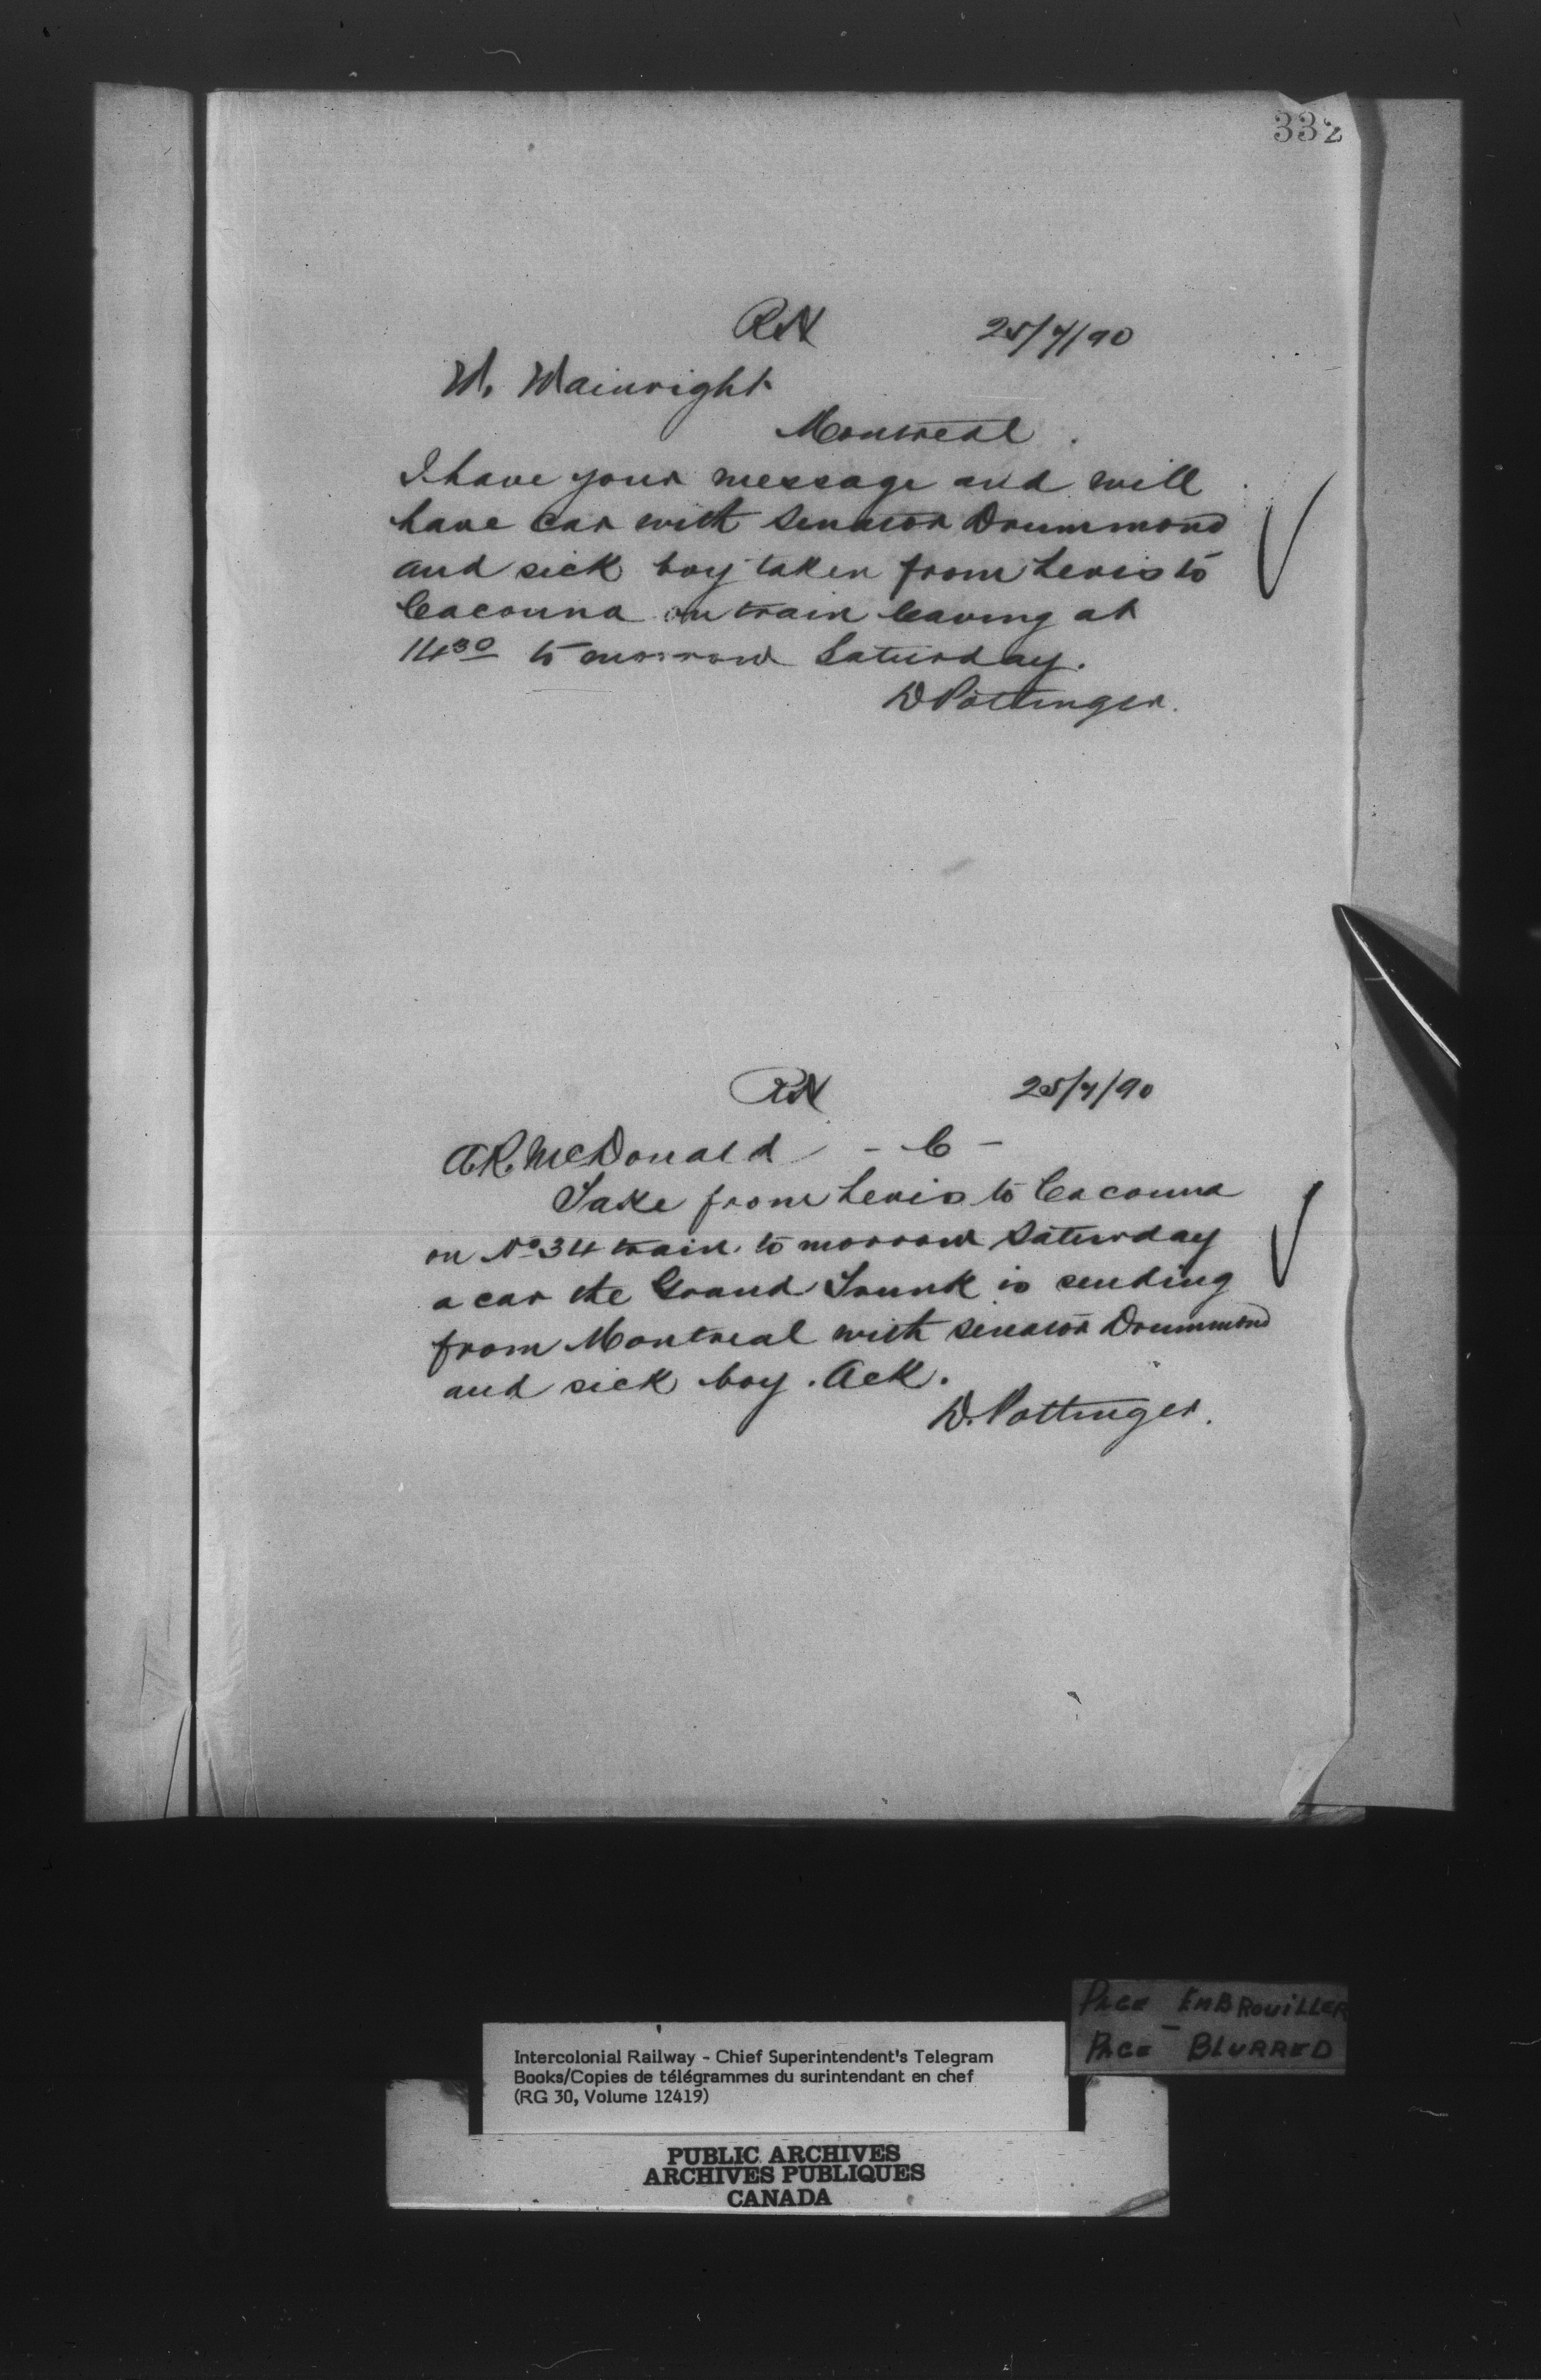 332
RN 25/7/90
W. Wainright
Montreal.
I have your message and will
have car with Senator Drummond
and sick boy taken from Levis to
Cacouna on train leaving at
14 30 to morrow Saturday.
D Pottinger.
RN 25/7/90
A.R. McDonald - C -
Take from Levis to Cacouna
on No 34 train to morrow Saturday
a car the Grand Trunk is sending
from Montreal with Senator Drummond
and sick boy. Ack.
D. Pottinger.
PAGE EMBROUILLER
PAGE BLURRED
Intercolonial Railway - Chief Superintendent's Telegram
Books/Copies de télégrammes du surintendant en chef
(RG 30, Volume 12419)
PUBLIC ARCHIVES
ARCHIVES PUBLIQUES
CANADA